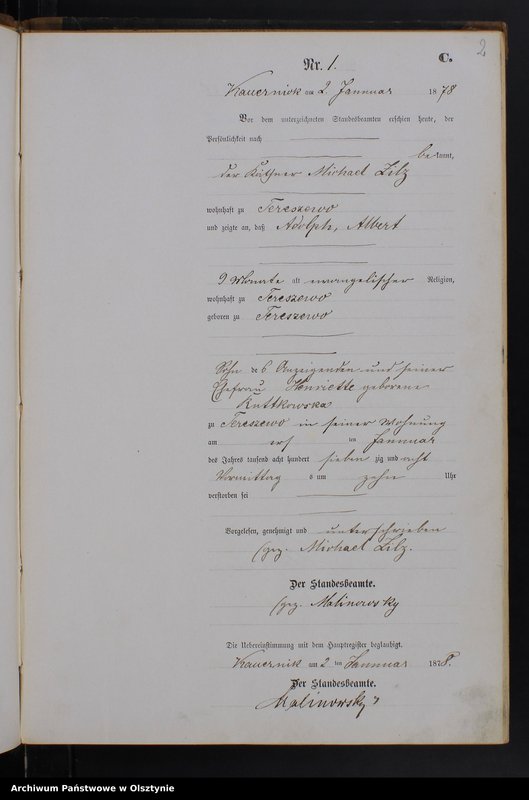 2
C.
Nr. 1.
Kauernick am 2. Januar 1878
Vor dem unterzeichneten Standesbeamten erschien heute, der
Persönlichkeit nach
bekannt,
der Käthner Michael Lilz
wohnhaft zu Tereszewo
und zeigte an, daß Adolph, Albert
9 Monate alt evangelischer Religion,
wohnhaft zu Tereszewo
geboren zu Tereszewo
Sohn des Anzeigenden und seiner
Ehefrau Henriette geborene
Ruttkowska
zu Tereszewo in seiner Wohnung
am ers ten Januar
des Jahres tausend acht hundert sieben zig und acht
Vormittag s um zehn Uhr
verstorben sei
Vorgelesen, genehmigt und unterschrieben
(gez. Michael Lilz.
Der Standesbeamte.
(gez. Malinowsky
Die Uebereinstimmung mit dem Hauptregister beglaubigt.
Kauernik am 2 ten Januar 1878.
Der Standesbeamte.
Malinowsky
Archiwum Państwowe w Olsztynie